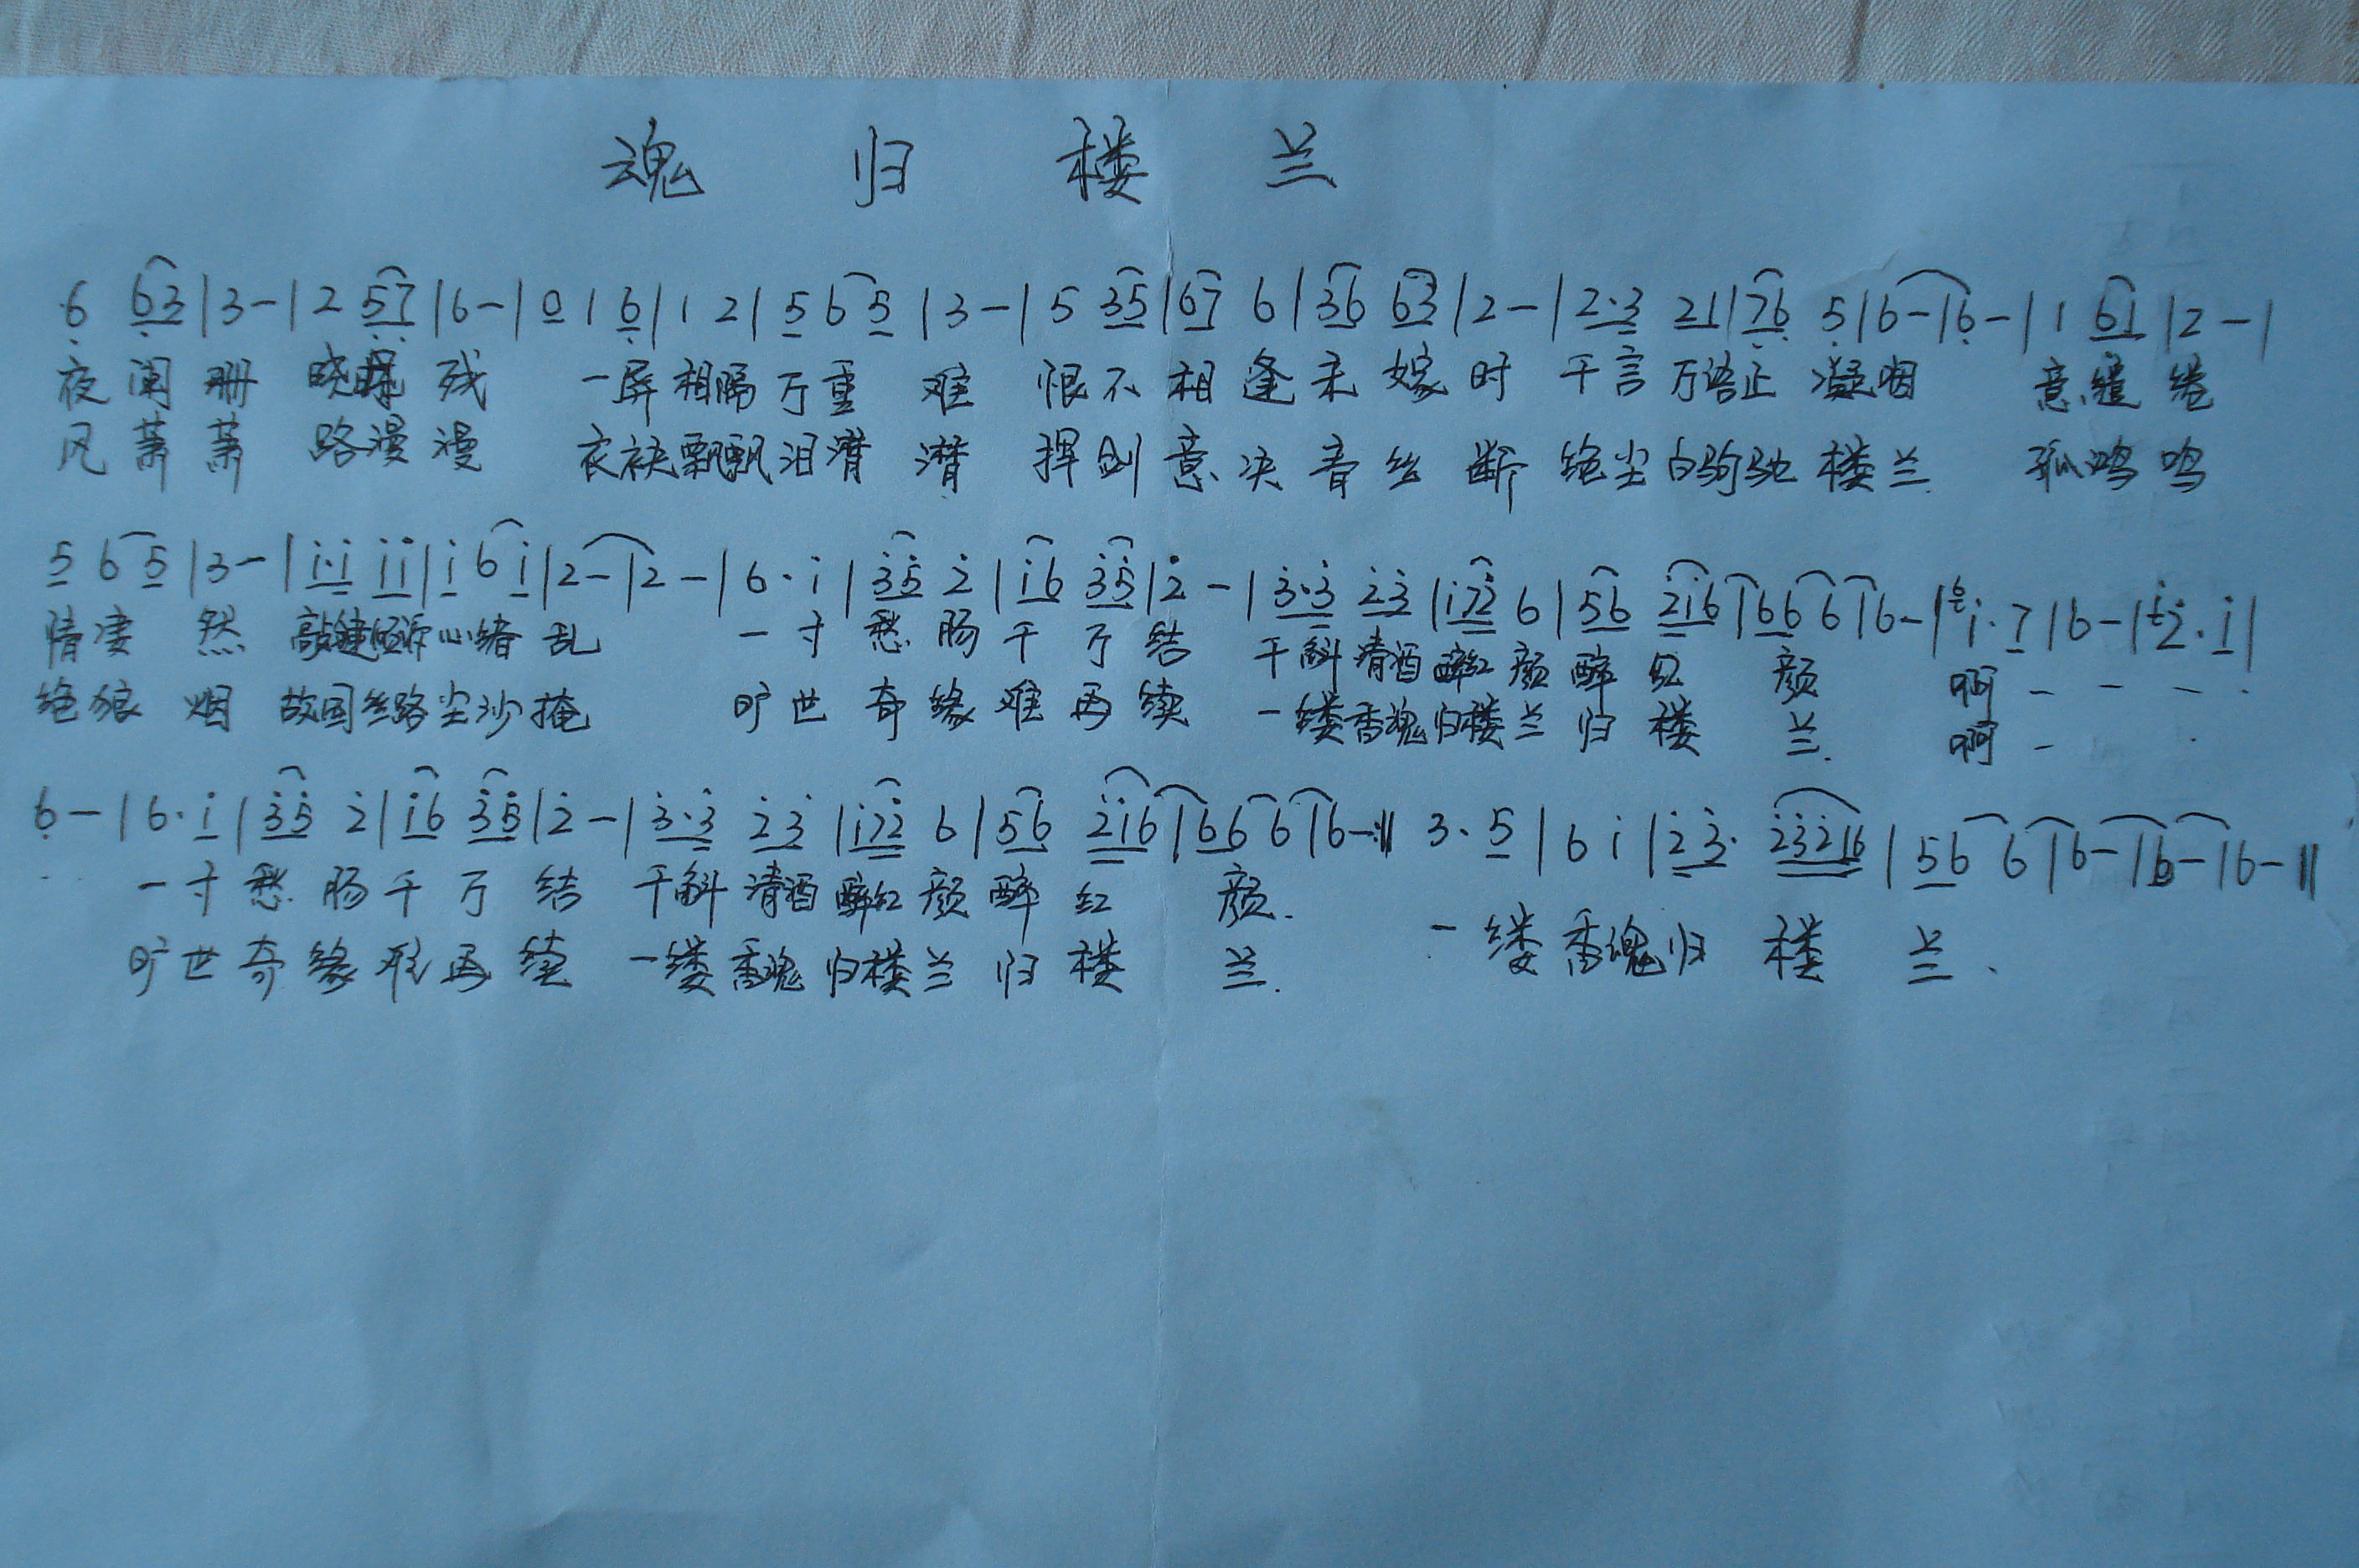 魂归楼兰
6 63|3-|2 57|6-|0 1 6|1 2|5 6 5|3-|5 35|67 6|36 63|2-|2·3 21|76 5|6-|6-|1 61|2-|
夜阑珊 晓 残 一屏相隔万重难 恨不相逢未嫁时 千言万语正凝咽 意缱绻
风萧萧 路漫漫 衣袂飘飘泪潸潸 挥剑意决青丝断 绝尘白驹驰楼兰 孤鸿鸣
5 6 5|3-|i·i ii|i 6 i|2-|2-|6·i|35 2|i6 35|2-|3·3 23|i72 6|56 2i6|66 6|6-|i·7|6-|2·i|
情凄然 敲键倾诉心绪乱 一寸愁肠千万结 千斛清酒醉红颜醉红颜 啊
绝狼烟 故国丝路尘沙掩 旷世奇缘难再续 一缕香魂归楼兰归楼兰. 啊
6-|6·i|35 2|i6 35|2-|3·3 23|i72 6|56 2i6|66 6|6-:‖ 3·5|6 i|23· 232i6|56 6|6-|6-|6-‖
一寸愁肠千万结 千斛清酒醉红颜醉红颜. 一缕香魂归楼兰.
旷世奇缘 再续 一缕香魂归楼兰归楼兰.